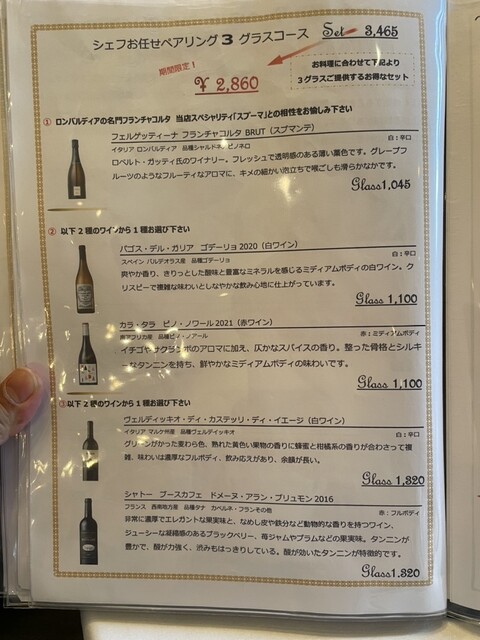 シェフお任せペアリング３グラスコース Set 3,465
期間限定！
¥ 2,860
お料理に合わせて下記より
３グラスご提供するお得なセット
① ロンバルディアの名門フランチャコルタ 当店スペシャリティ「スプーマ」との相性をお愉しみ下さい
フェルゲッティーナ フランチャコルタ BRUT（スプマンテ）
イタリア ロンバルディア 品種シャルドネ・ピノネロ
白：辛口
ロベルト・ガッティ氏のワイナリー。フレッシュで透明感のある薄い藁色です。グレープフ
ルーツのようなフルーティなアロマに、キメの細かい泡立ちで喉ごしも滑らかなかです。
Glass1,045
② 以下２種のワインから１種お選び下さい
パゴス・デル・ガリア ゴデーリョ2020（白ワイン）
スペイン バルデオラス産 品種ゴデーリョ
白：辛口
爽やか香り、きりっとした酸味と豊富なミネラルを感じるミディアムボディの白ワイン。ク
リスピーで複雑な味わいとしなやかな飲み心地に仕上がっています。
Glass 1,100
カラ・タラ ピノ・ノワール2021（赤ワイン）
南アフリカ産 品種ピノ・ノアール
赤：ミディアムボディ
イチゴやサクランボのアロマに加え、仄かなスパイスの香り。整った骨格とシルキ
ーなタンニンを持ち、鮮やかなミディアムボディの味わいです。
Glass 1,100
③ 以下２種のワインから１種お選び下さい
ヴェルディッキオ・ディ・カステッリ・ディ・イエージ（白ワイン）
イタリア マルケ州産 品種ヴェルディッキオ
白：辛口
グリーンがかった麦わら色、熟れた黄色い果物の香りに蜂蜜と柑橘系の香りが合わさって複
雑、味わいは濃厚なフルボディ、飲み応えがあり、余韻が長い。
Glass 1,320
シャトー ブースカフェ ドメーヌ・アラン・ブリュモン2016
フランス 西南地方産 品種タナ カベルネ・フランその他
赤：フルボディ
非常に濃厚でエレガントな果実味と、なめし皮や鉄分など動物的な香りを持つワイン、
ジューシーな凝縮感のあるブラックベリー、苺ジャムやプラムなどの果実味。タンニンが
豊かで、酸が力強く、渋みもはっきりしている。酸が効いたタンニンが特徴的です。
Glass1,320